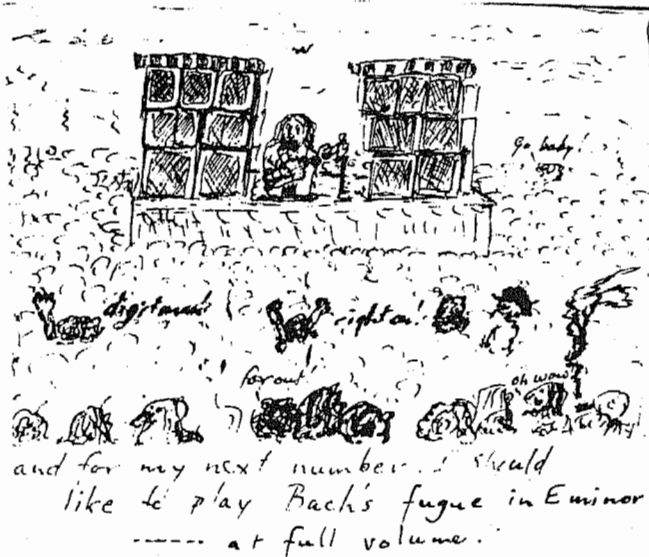 Go, baby!
dig it man!
right on!
far out!
oh wow!
and for my next number. I should
like to play Bach's fugue in E minor
------ at full volume.